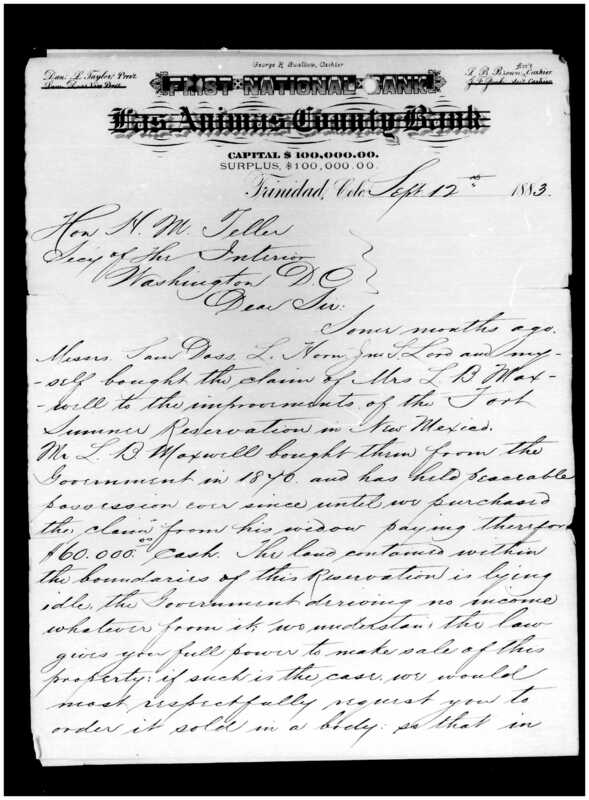 George R. Swallow, Cashier
Dan. L. Taylor Prest.
Ass't
L. B. Brown, Cashier
FIRST NATIONAL BANK
Las Animas County Bank
CAPITAL $100,000.00.
SURPLUS, $100,000.00.
Trinidad, Colo Sept. 12th 1883.
Hon H. M. Teller
Secy of the Interior
Washington D.C
Dear Sir:
Some months ago.
Messrs. Sam Doss, L. Horn Jno S. Lord and my-
-self bought the claim of Mrs L B Max-
-well to the improvments of the Fort
Sumner Reservation in New Mexico.
Mr L. B Maxwell bought them from the
Government in 1870. and has held peaceable
possession ever since until we purchased
the claim from his widow paying therefor
$60.000.00 Cash. The land contained within
the boundaries of this Reservation is lying
idle, the Government deriving no income
whatever from it; we understand the law
gives you full power to make sale of this
property: if such is the case, we would
most respectfully request you to
order it sold in a body: so that in